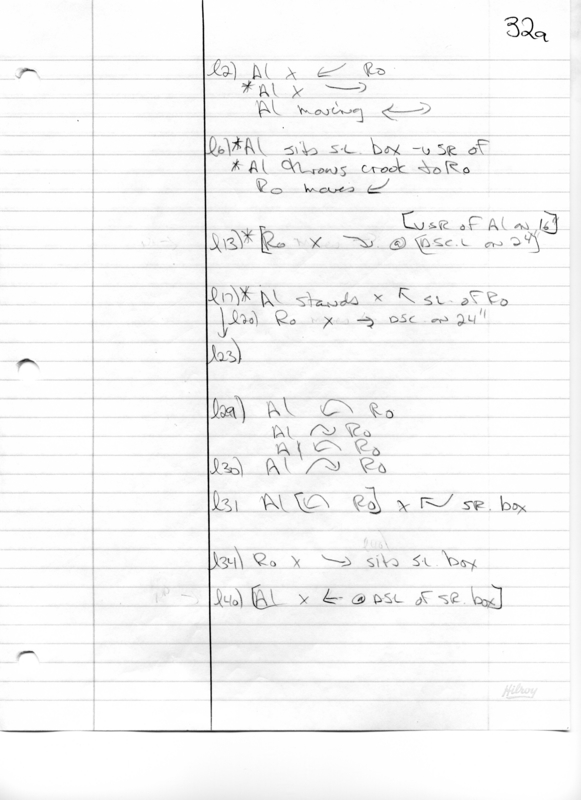 32a
l2) Al x ↙ Ro
*Al x →
Al moving ↔
l6)*Al sits s.L. box -U SR of
*Al throws crook to Ro
Ro moves ↙
[USR of Al on 16"]
l13)*[Ro x ↘ @ [DSC.L on 24"]
l17)* Al stands x ↖ SL. of Ro
↓l20) Ro x → DSC on 24"
l23)
l29) Al ↶ Ro
Al ~ Ro
Al ↶ Ro
l30) Al ~ Ro
l31 Al [↶ Ro] x ↖ SR. box
l34) Ro x ↘ sits s.L. box
l40) [Al x ← @ DSL of SR. box]
Hilroy